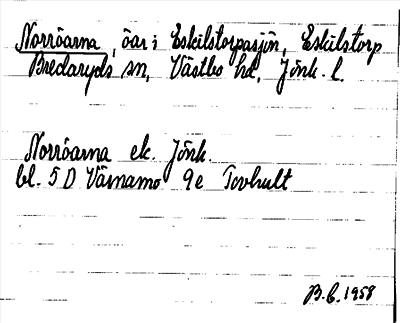 Norröarna, öar i Eskilstorpasjön, Eskilstorp
Bredaryds sn, Västbo hd, Jönk. l.
Norröarna ek. Jönk.
bl. 5 D Värnamo 9e Tovhult
B.C. 1958